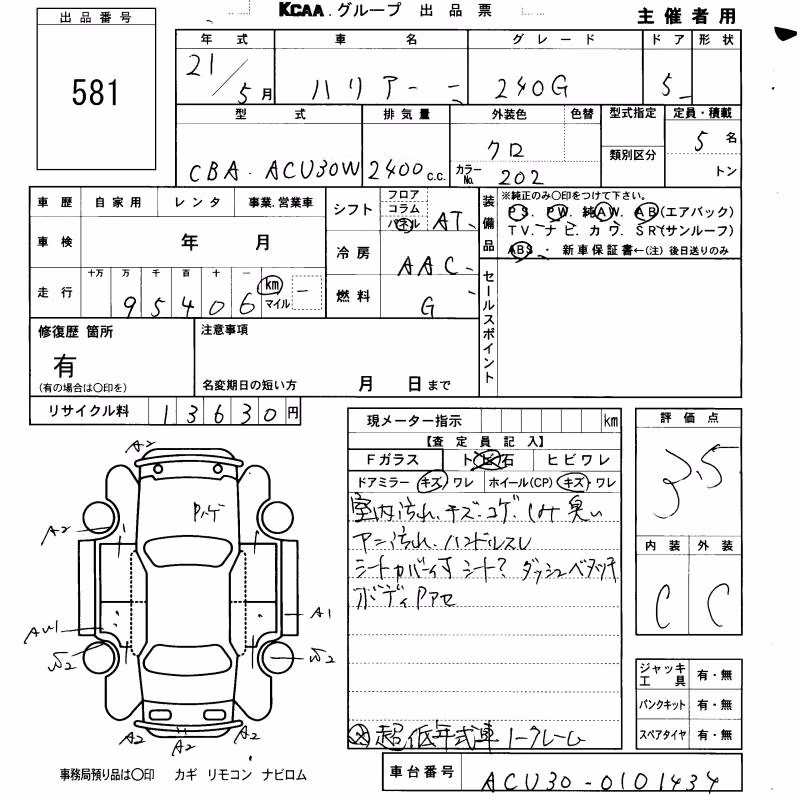 KCAA.グループ 出品票
主催者用
出品番号
581
年式 車名 グレード ドア 形状
21/5月 ハリアー 240G 5
型式 排気量 外装色 色替 型式指定 定員・積載
CBA-ACU30W 2400c.c. クロ 類別区分 5名
カラーNo. 202 トン
車歴 自家用 レンタ 事業.営業車
車検 年 月
走行 十万 万 千 百 十 一
95406 km マイル
シフト フロア コラム パネル AT
冷房 AAC
燃料 G
装備品
※純正のみ〇印をつけて下さい。
PS. PW. 純AW. AB(エアバック)
TV.ナビ.カワ.SR(サンルーフ)
ABS ・ 新車保証書←(注) 後日送りのみ
セールスポイント
修復歴 箇所
有
(有の場合は〇印を)
注意事項
名変期日の短い方 月 日まで
リサイクル料 13630円
現メーター指示 km
【査定員記入】
Fガラス トビ石 ヒビワレ
ドアミラー キズ・ワレ ホイール(CP) キズ・ワレ
室内汚れ.キズ.コゲ.しみ 臭い
ハンドルスレ
ダッシュベタツキ
ボディ
超低年式車 ノークレーム
評価点
3.5
内装 外装
C C
ジャッキ工具 有・無
パンクキット 有・無
スペアタイヤ 有・無
A2
A2
A1
AW1
A2
A2
A2
事務局預り品は〇印 カギ リモコン ナビロム
車台番号 ACU30-0101434